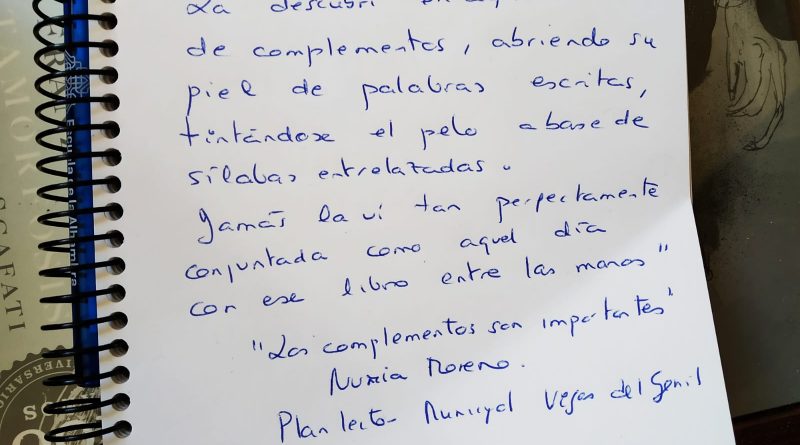 La descubrí en
de complementos, abriendo su
piel de palabras escritas,
tintándose el pelo a base de
sílabas entrelazadas.
Jamás la vi tan perfectamente
conjuntada como aquel día
con ese libro entre las manos"
"Los complementos son importantes"
Nuria Moreno.
Plan lector Municipal Vegas del Genil
Escuela de la Alhambra
SCAFATI